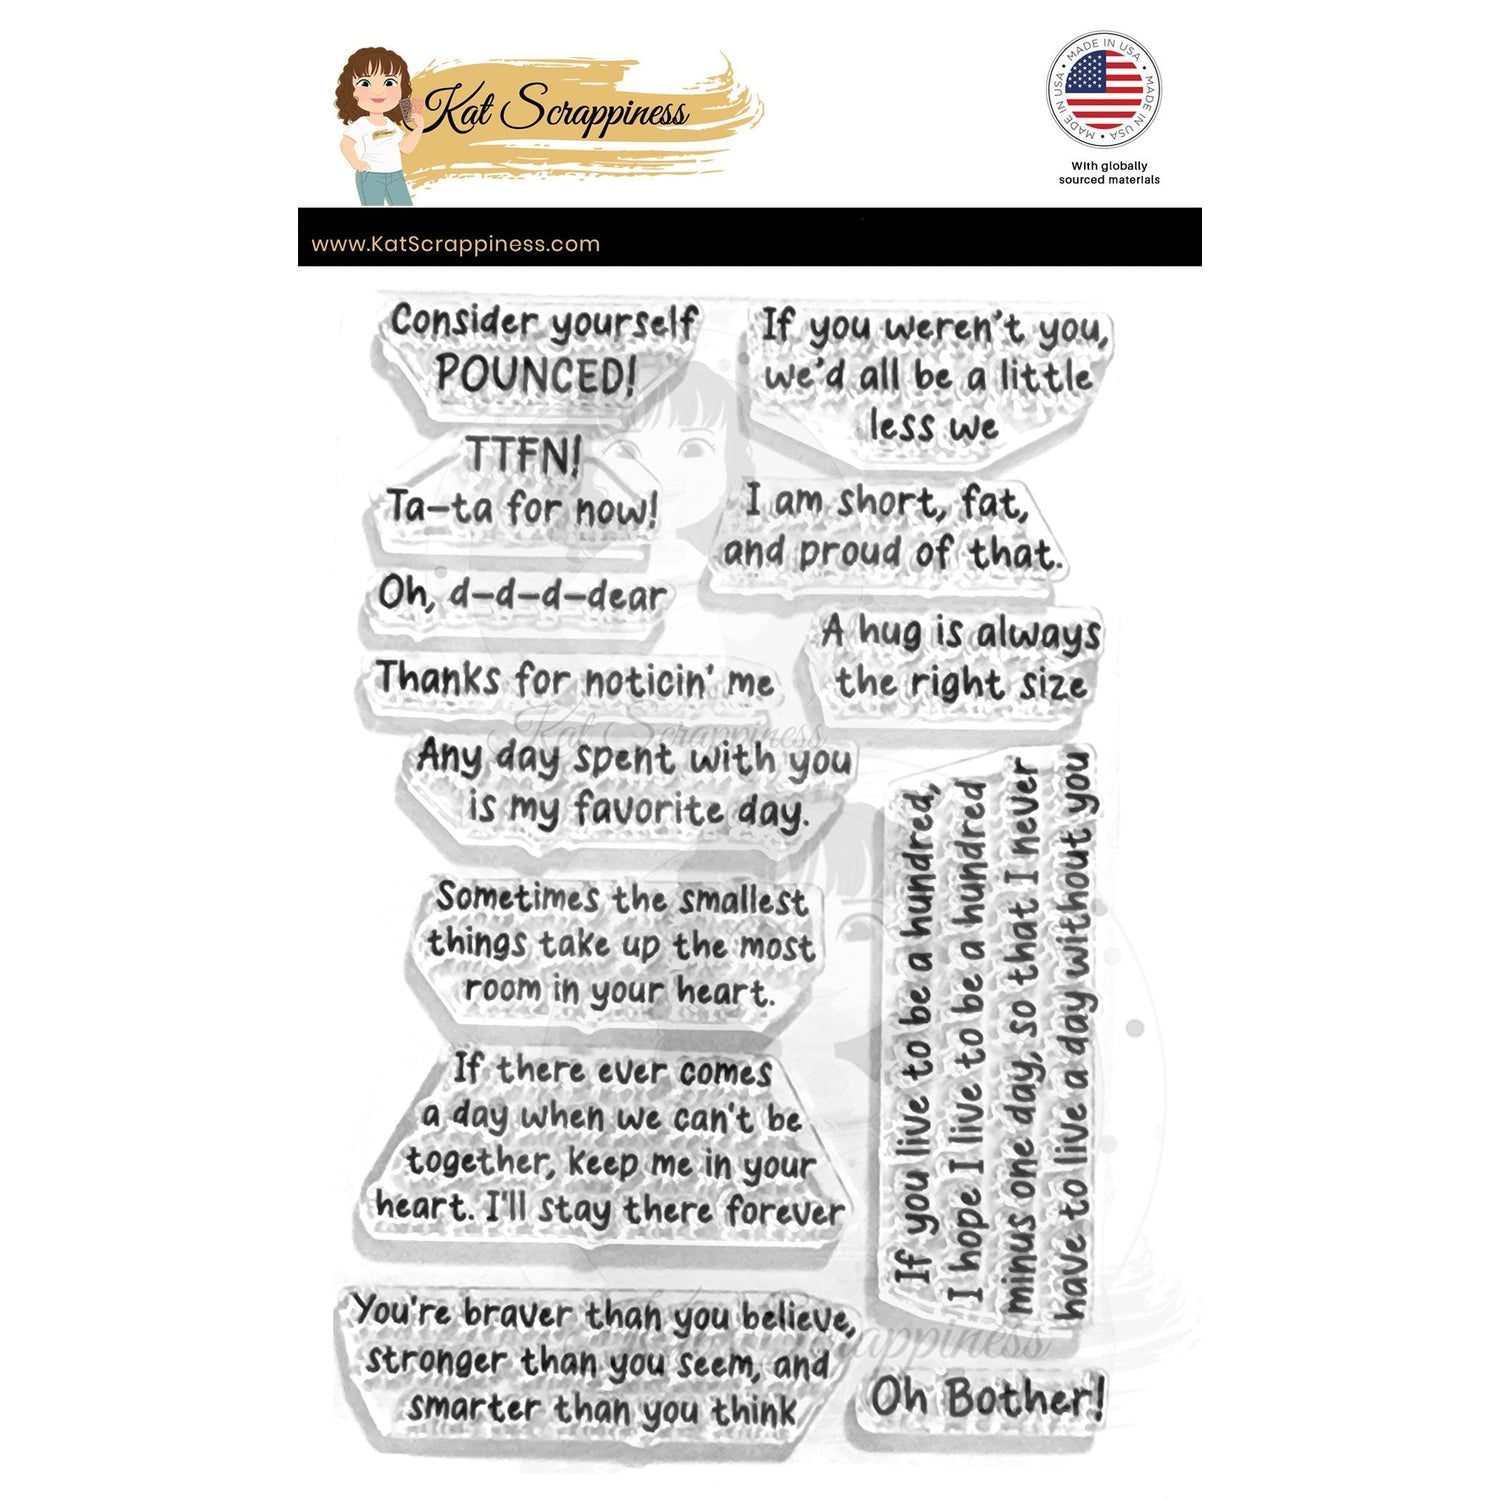 Kat Scrappiness
MADE IN USA • MADE IN USA • MADE IN USA •
With globally
sourced materials
www.KatScrappiness.com
Consider yourself
POUNCED!
If you weren't you,
we'd all be a little
less we
TTFN!
Ta-ta for now!
I am short, fat,
and proud of that.
Oh, d-d-d-dear
A hug is always
the right size
Thanks for noticin' me
Kat Scrappiness
Any day spent with you
is my favorite day.
Sometimes the smallest
things take up the most
room in your heart.
If you live to be a hundred,
I hope I live to be a hundred
minus one day, so that I never
have to live a day without you
If there ever comes
a day when we can't be
together, keep me in your
heart. I'll stay there forever
You're braver than you believe,
stronger than you seem, and
smarter than you think
Scrappiness
Oh Bother!